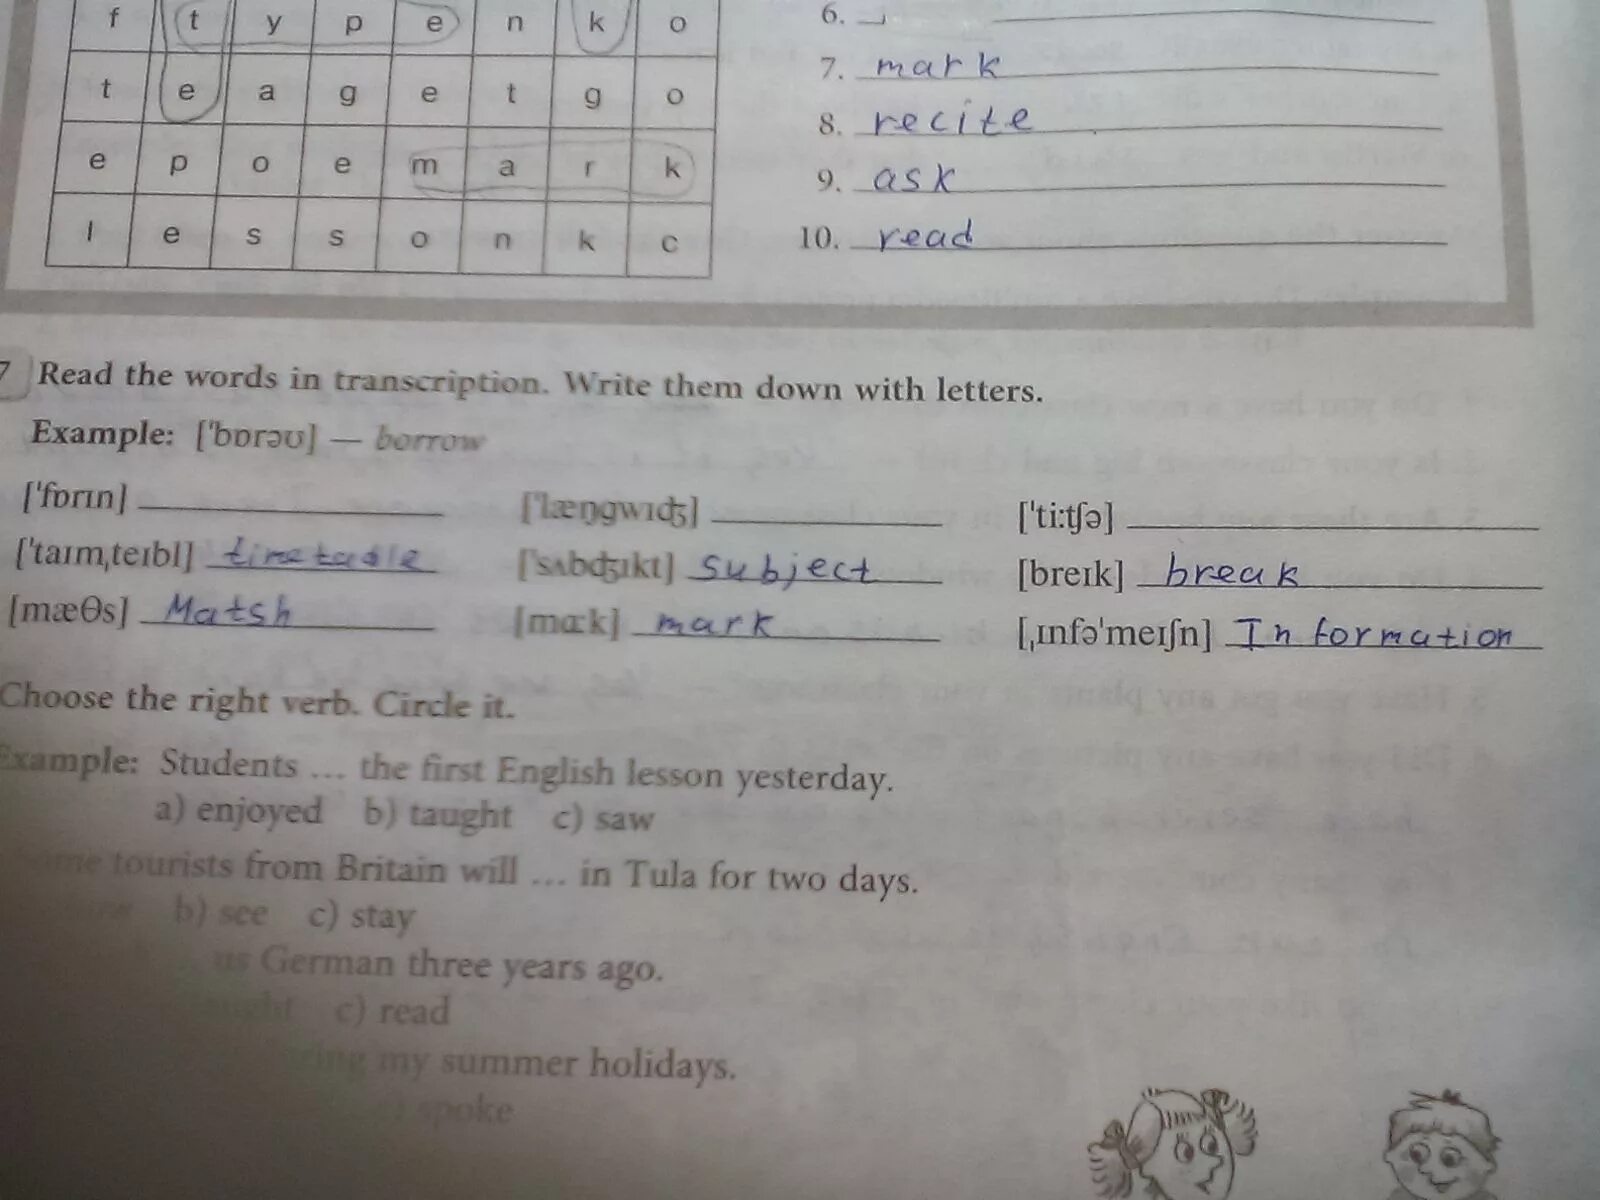 f t y p e n k o
6.
t e a g e t g o
7. mark
e p o e m a r k
8. recite
9. ask
l e s s o n k c
10. read
7 Read the words in transcription. Write them down with letters.
Example: [ˈbɒrəʊ] — borrow
[ˈfɒrɪn] [ˈlæŋgwɪʤ] [ˈtiːʧə]
[ˈtaɪmˌteɪbl] timetable [ˈsʌbʤɪkt] subject [breɪk] break
[mæθs] Matsh [mɑːk] mark [ˌɪnfəˈmeɪʃn] Information
Choose the right verb. Circle it.
Example: Students ... the first English lesson yesterday.
a) enjoyed b) taught c) saw
tourists from Britain will ... in Tula for two days.
b) see c) stay
us German three years ago.
c) read
my summer holidays.
spoke